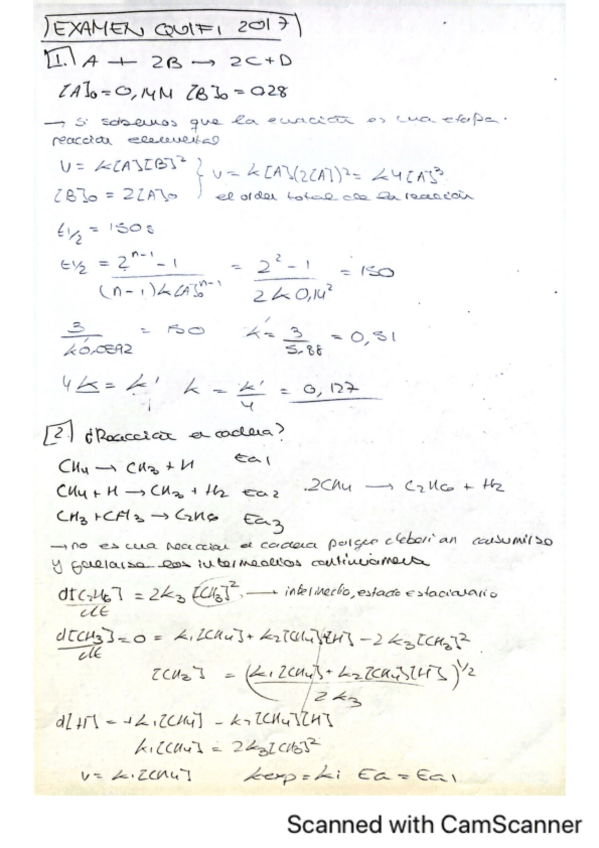 EXAMEN QUIFI 2017
1. A + 2B → 2C + D
[A]₀ = 0,14M [B]₀ = 028
→ si sabemos que la ecuación es una etapa.
reacción elemental
V = k[A][B]²
[B]₀ = 2[A]₀
v = k[A](2[A])² = k4[A]³
el orden total de la reacción
t1/2 = 150 s
t1/2 = 2ⁿ⁻¹ - 1 / (n-1)k[A]₀ⁿ⁻¹ = 2² - 1 / 2k0,14² = 150
3 / k0,0392 = 150 k' = 3 / 5.88 = 0,51
4k = k' k = k'/4 = 0,127
2. ¿Reacción en cadena?
CH₄ → CH₃ + H Ea1
CH₄ + H → CH₃ + H₂ Ea2 2CH₄ → C₂H₆ + H₂
CH₃ + CH₃ → C₂H₆ Ea3
→ no es una reacción en cadena porque deberían consumirse
y los intermedios continuamente
d[C₂H₆]/dt = 2k₃[CH₃]² → intermedio, estado estacionario
d[CH₃]/dt = 0 = k₁[CH₄] + k₂[CH₄][H] - 2k₃[CH₃]²
[CH₃] = (k₁[CH₄] + k₂[CH₄][H] / 2k₃)^1/2
d[H] = +k₁[CH₄] - k₂[CH₄][H]
k₁[CH₄] = 2k₃[CH₃]²
v = k₁[CH₄] kexp = k₁ Ea = Ea1
Scanned with CamScanner